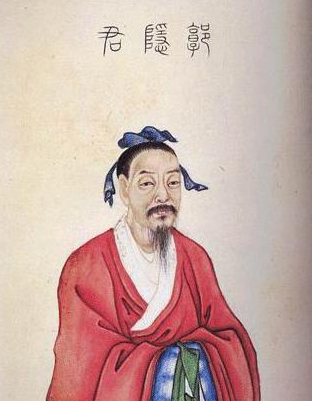 郭隱君